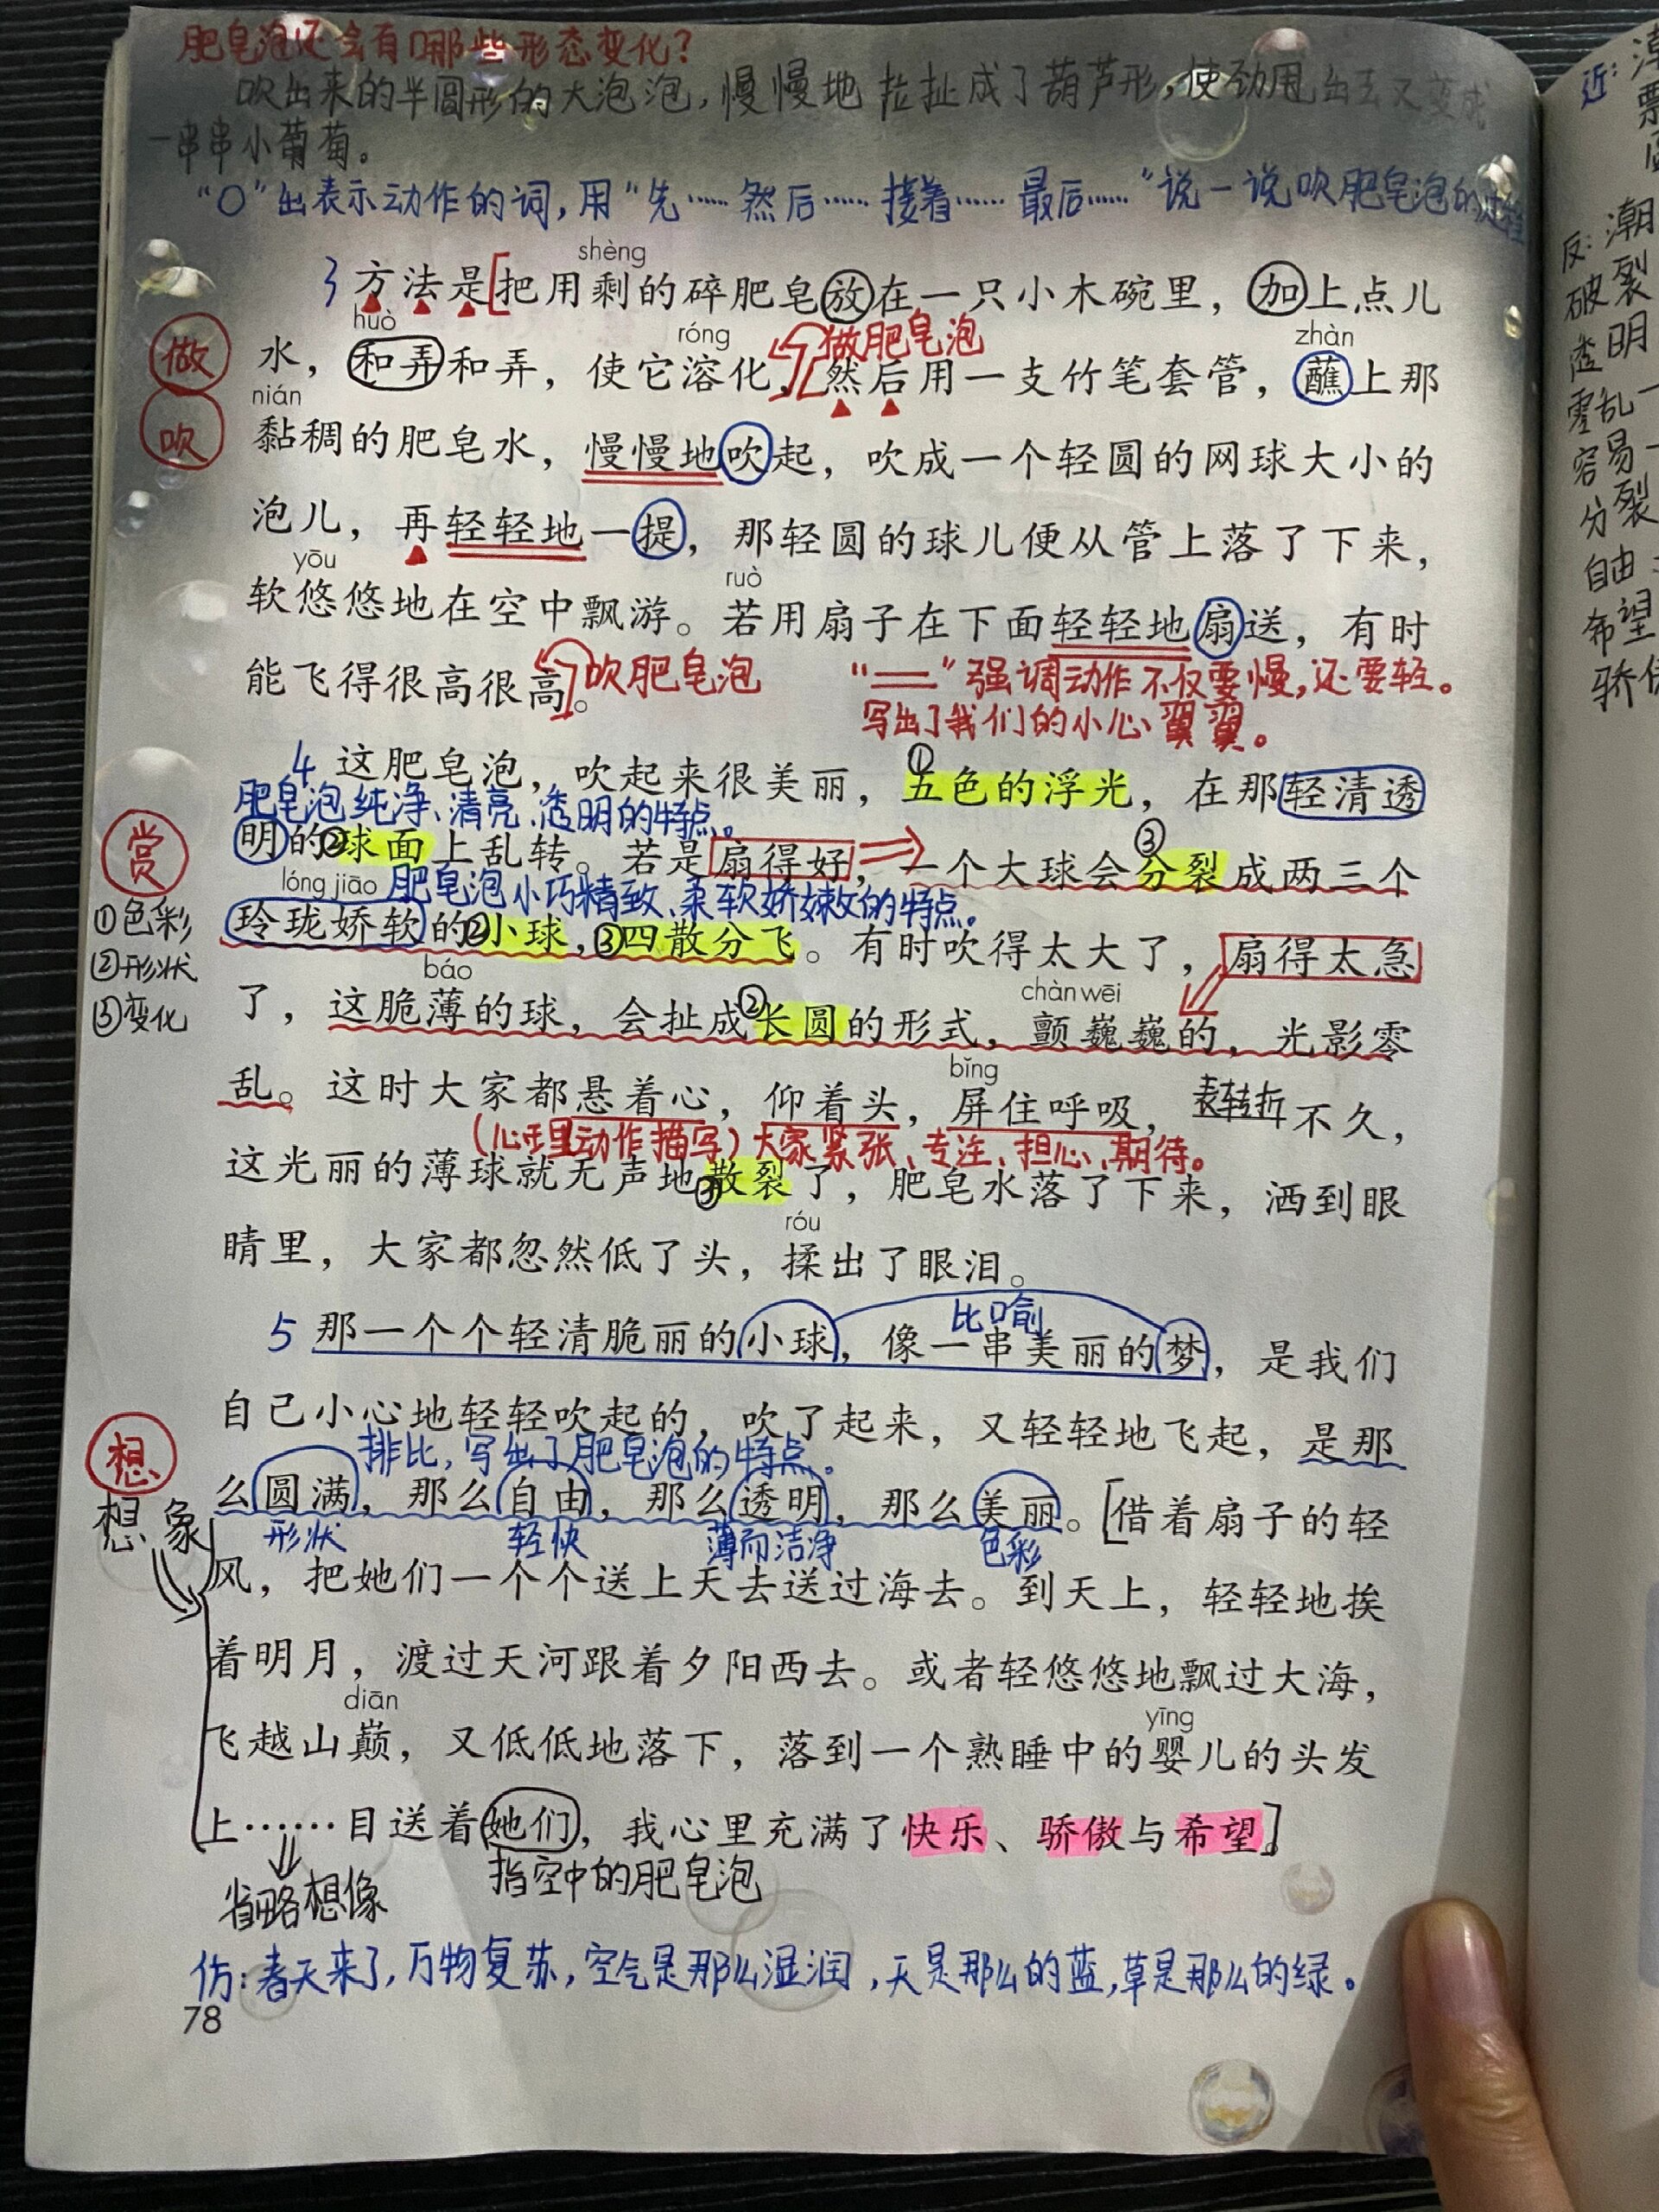 肥皂泡还会有哪些形态变化？
吹出来的半圆形的大泡泡，慢慢地拉扯成了葫芦形，使劲甩出去又变成
一串串小葡萄。
“○”出表示动作的词，用“先……然后……接着……最后……”说一说吹肥皂泡的过程
shèng
3 方法是[把用剩的碎肥皂放在一只小木碗里，加上点儿
huò róng 做肥皂泡 zhàn
做
水，和弄和弄，使它溶化，]然后用一支竹笔套管，蘸上那
nián
吹
黏稠的肥皂水，慢慢地吹起，吹成一个轻圆的网球大小的
泡儿，再轻轻地一提，那轻圆的球儿便从管上落了下来，
yōu ruò
软悠悠地在空中飘游。若用扇子在下面轻轻地扇送，有时
能飞得很高很高。
吹肥皂泡
“＝”强调动作不仅要慢，还要轻。
写出了我们的小心翼翼。
4 这肥皂泡，吹起来很美丽，①五色的浮光，在那轻清透
肥皂泡纯净、清亮、透明的特点。
赏
明的②球面上乱转。若是扇得好，一个大球会③分裂成两三个
lóng jiāo 肥皂泡小巧精致、柔软娇嫩的特点。
①色彩
玲珑娇软的②小球，③四散分飞。有时吹得太大了，扇得太急
②形状
báo chàn wēi
③变化
了，这脆薄的球，会扯成②长圆的形式，颤巍巍的，光影零
bǐng
乱。这时大家都悬着心，仰着头，屏住呼吸，——不久，
表转折
（心理动作描写）大家紧张、专注、担心、期待。
这光丽的薄球就无声地③散裂了，肥皂水落了下来，洒到眼
róu
睛里，大家都忽然低了头，揉出了眼泪。
比喻
5 那一个个轻清脆丽的小球，像一串美丽的梦，是我们
自己小心地轻轻吹起的，吹了起来，又轻轻地飞起，是那
想
排比，写出了肥皂泡的特点。
么圆满，那么自由，那么透明，那么美丽。[借着扇子的轻
想象
形状 轻快 薄而洁净 色彩
风，把她们一个个送上天去送过海去。到天上，轻轻地挨
着明月，渡过天河跟着夕阳西去。或者轻悠悠地飘过大海，
diān yīng
飞越山巅，又低低地落下，落到一个熟睡中的婴儿的头发
上……目送着她们，我心里充满了快乐、骄傲与希望。]
省略想像
指空中的肥皂泡
仿：春天来了，万物复苏，空气是那么湿润，天是那么的蓝，草是那么的绿。
78
近：
反：潮
破裂
透明
零乱一
容易一
分裂
自由
希望